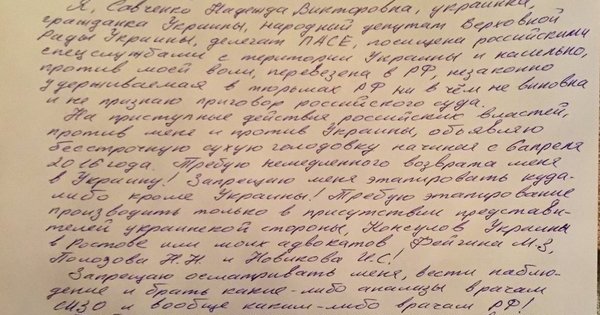 Я, Савченко Надежда Викторовна, украинка,
гражданка Украины, народный депутат Верховной
Рады Украины, делегат ПАСЕ, похищена российскими
спецслужбами с територии Украины и насильно,
против моей воли, перевезена в РФ, незаконно
удерживаемая в тюрьмах РФ ни в чём не виновна
и не признаю приговор российского суда.
На приступные действия российских властей,
против меня и против Украины, объявляю
бессрочную сухую голодовку начиная с 6 апреля
2016 года. Требую немедленного возврата меня
в Украину! Запрещаю меня этапировать куда-
либо кроме Украины! Требую этапирование
производить только в присутствии представи-
телей украинской стороны, Консулов Украины
в Ростове или моих адвокатов Фейгина М.З,
Полозова Н.Н и Новикова И.С!
Запрещаю осматривать меня, вести наблю-
дение и брать какие-либо анализы врачам
СИЗО и вообще каким-либо врачам РФ!